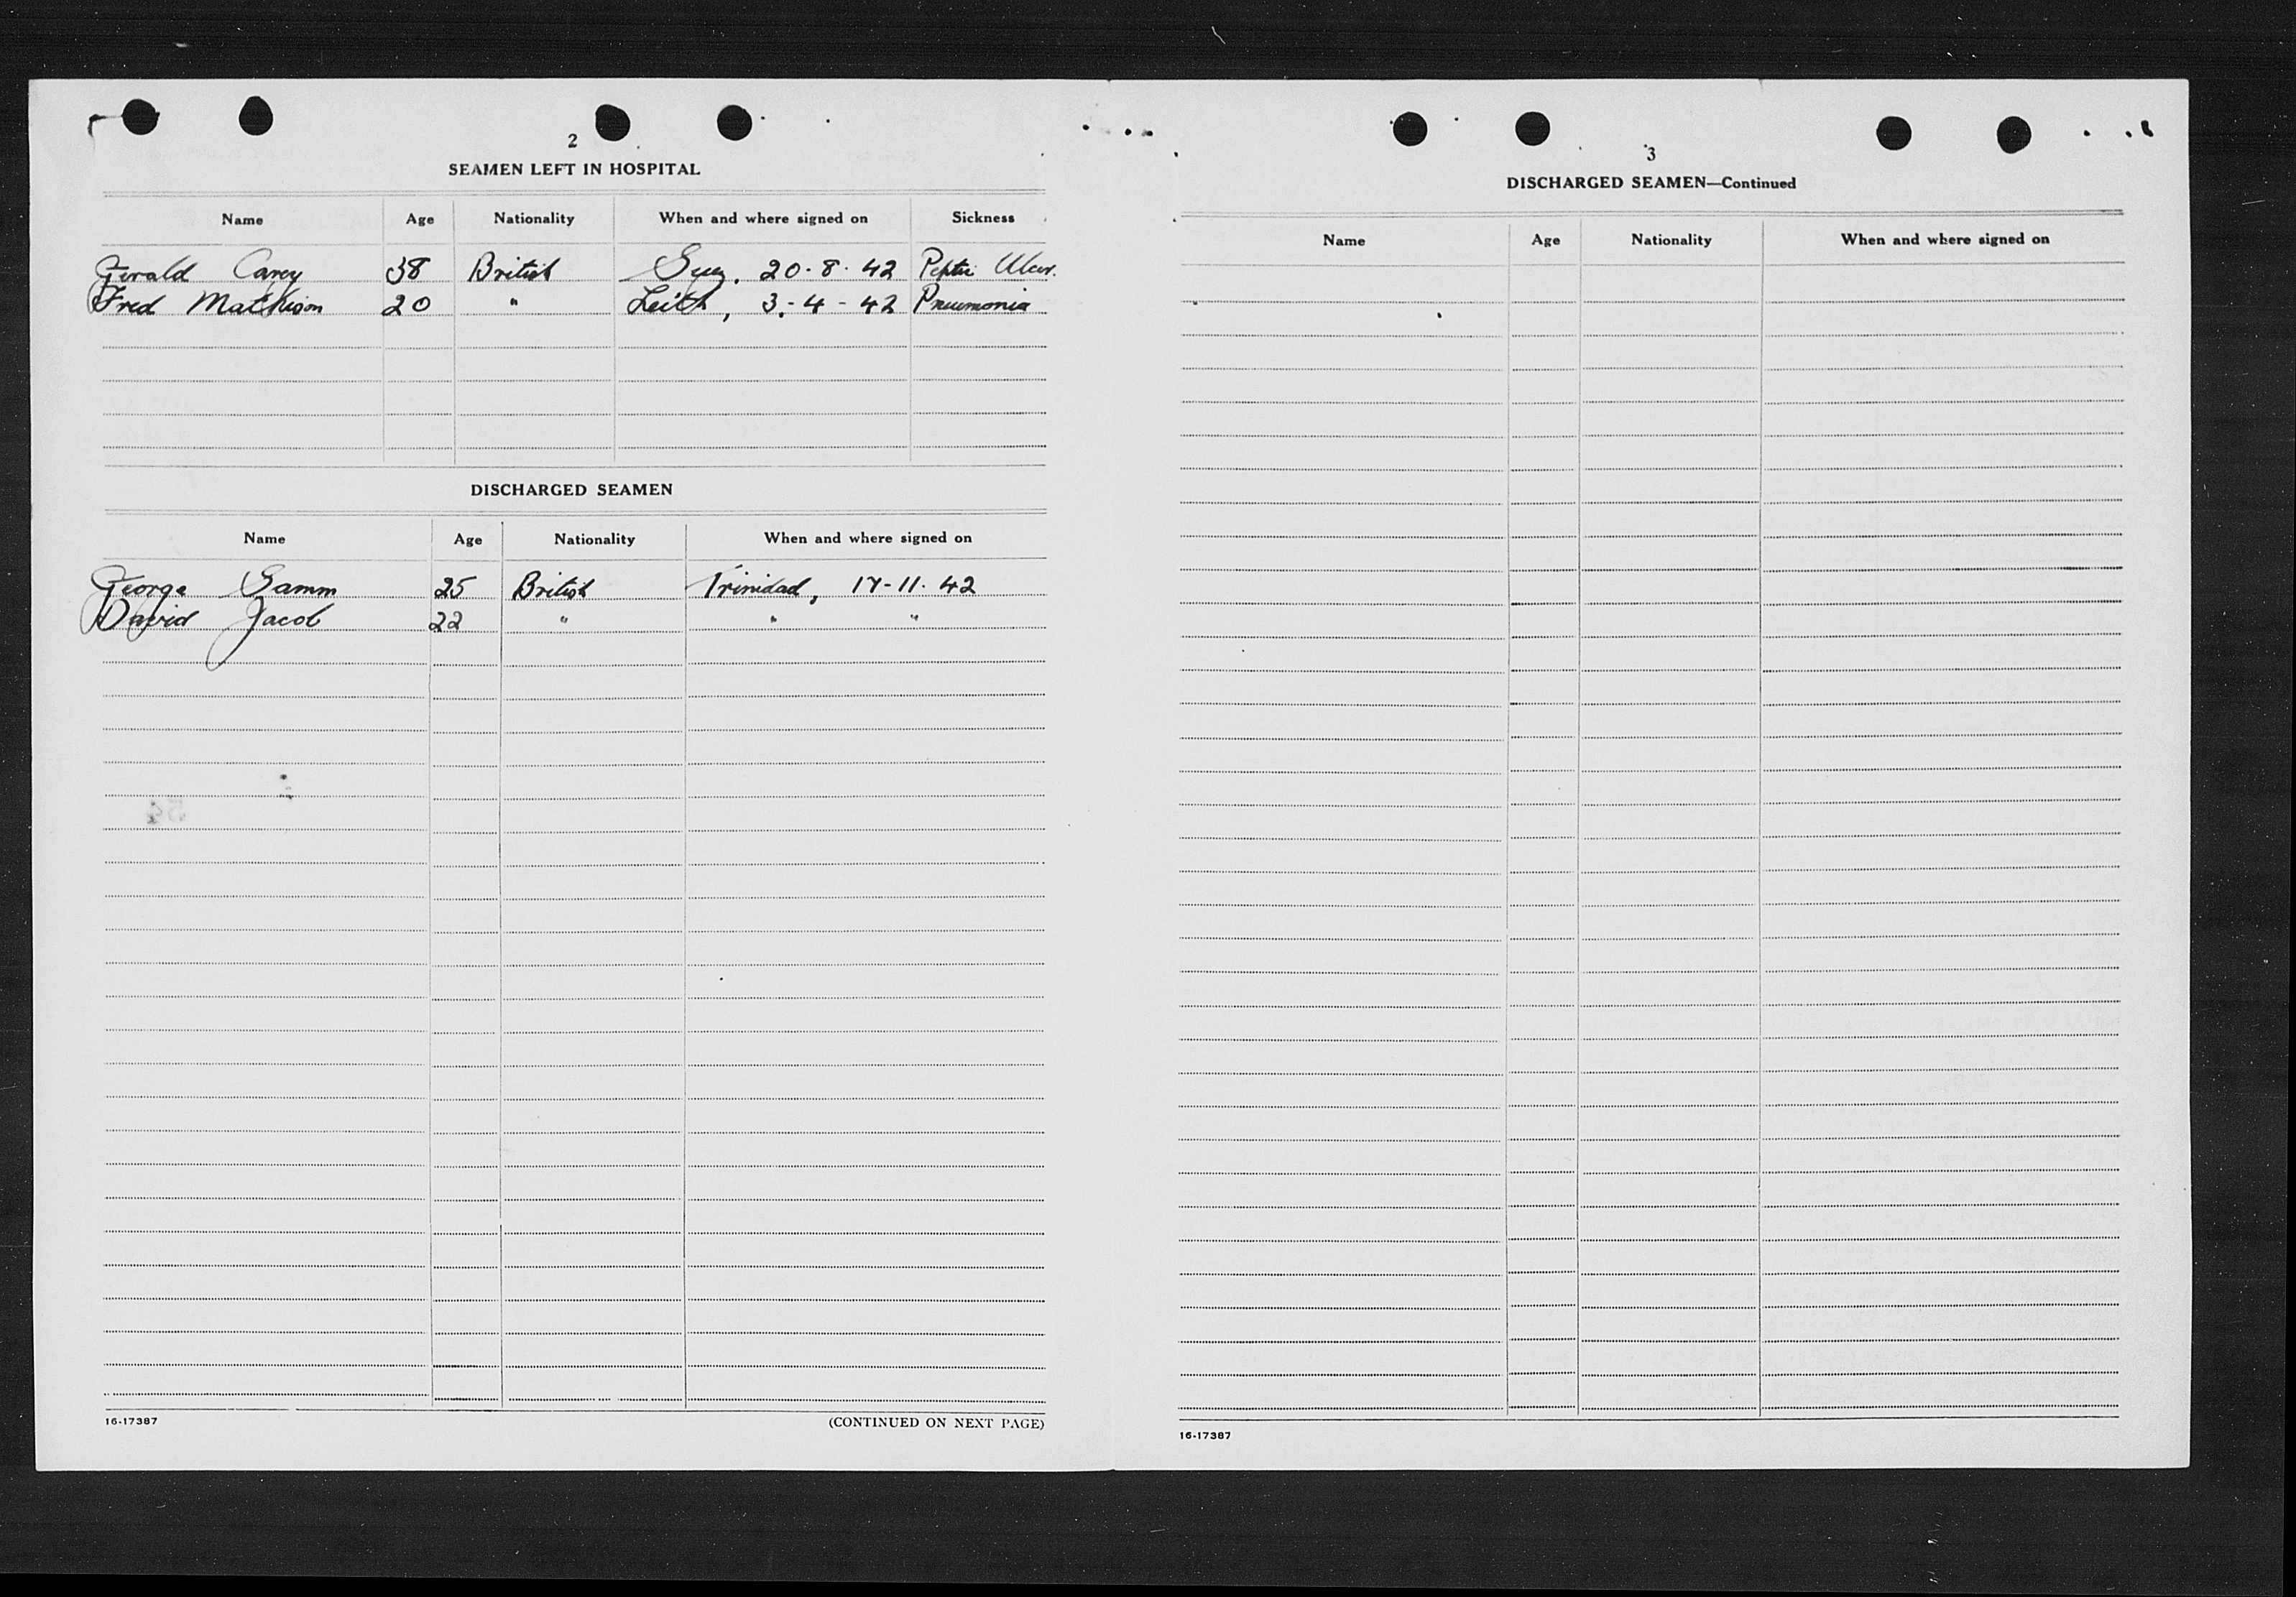 2
SEAMEN LEFT IN HOSPITAL
Name Age Nationality When and where signed on Sickness
Gerald Carey 38 British Suez, 20-8-42 Peptic Ulcer.
Fred Mathison 20 " Leith, 3-4-42 Pneumonia
DISCHARGED SEAMEN
Name Age Nationality When and where signed on
George Samm 25 British Trinidad, 17-11-42
David Jacob 22 " " "
16-17387 (CONTINUED ON NEXT PAGE)
3
DISCHARGED SEAMEN—Continued
Name Age Nationality When and where signed on
16-17387